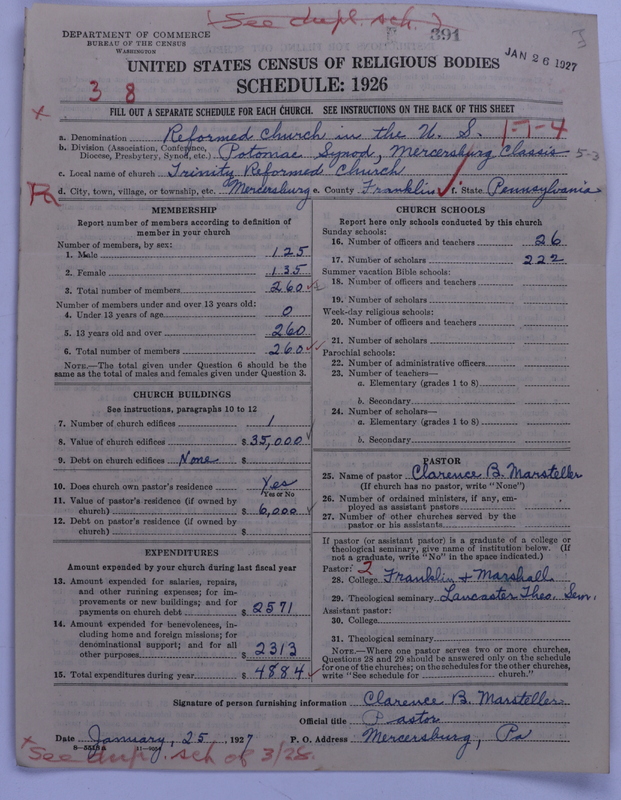 See dupl. sch.
DEPARTMENT OF COMMERCE
BUREAU OF THE CENSUS
WASHINGTON
391
JAN 26 1927
UNITED STATES CENSUS OF RELIGIOUS BODIES
SCHEDULE: 1926
3 8
FILL OUT A SEPARATE SCHEDULE FOR EACH CHURCH. SEE INSTRUCTIONS ON THE BACK OF THIS SHEET
a. Denomination Reformed Church in the U. S. 1-7-4
b. Division (Association, Conference, Diocese, Presbytery, Synod, etc.) Potomac Synod, Mercersburg Classis 5-3
c. Local name of church Trinity Reformed Church
d. City, town, village, or township, etc. Mercersburg e. County Franklin f. State Pennsylvania
MEMBERSHIP
Report number of members according to definition of
member in your church
Number of members, by sex:
1. Male 125
2. Female 135
3. Total number of members 260
Number of members under and over 13 years old:
4. Under 13 years of age 0
5. 13 years old and over 260
6. Total number of members 260
NOTE.—The total given under Question 6 should be the
same as the total of males and females given under Question 3.
CHURCH BUILDINGS
See instructions, paragraphs 10 to 12
7. Number of church edifices 1
8. Value of church edifices $ 35,000
9. Debt on church edifices None $
10. Does church own pastor's residence Yes
Yes or No
11. Value of pastor's residence (if owned by
church) $ 6,000
12. Debt on pastor's residence (if owned by
church) $
EXPENDITURES
Amount expended by your church during last fiscal year
13. Amount expended for salaries, repairs,
and other running expenses; for im-
provements or new buildings; and for
payments on church debt $ 2571
14. Amount expended for benevolences, in-
cluding home and foreign missions; for
denominational support; and for all
other purposes $ 2313
15. Total expenditures during year $ 4884
CHURCH SCHOOLS
Report here only schools conducted by this church
Sunday schools:
16. Number of officers and teachers 26
17. Number of scholars 222
Summer vacation Bible schools:
18. Number of officers and teachers
19. Number of scholars
Week-day religious schools:
20. Number of officers and teachers
21. Number of scholars
Parochial schools:
22. Number of administrative officers
23. Number of teachers—
a. Elementary (grades 1 to 8)
b. Secondary
24. Number of scholars—
a. Elementary (grades 1 to 8)
b. Secondary
PASTOR
25. Name of pastor Clarence B. Marsteller
(If church has no pastor, write "None")
26. Number of ordained ministers, if any, em-
ployed as assistant pastors
27. Number of other churches served by the
pastor or his assistants
If pastor (or assistant pastor) is a graduate of a college or
theological seminary, give name of institution below. (If
not a graduate, write "No" in the space indicated.)
Pastor: 2
28. College Franklin & Marshall
29. Theological seminary Lancaster Theo. Sem.
Assistant pastor:
30. College
31. Theological seminary
NOTE.—Where one pastor serves two or more churches,
Questions 28 and 29 should be answered only on the schedule
for one of the churches; on the schedules for the other churches,
write "See schedule for church."
Signature of person furnishing information Clarence B. Marsteller
Official title Pastor
Date January, 25, 1927 P. O. Address Mercersburg, Pa
See dupl. sch of 3/28.